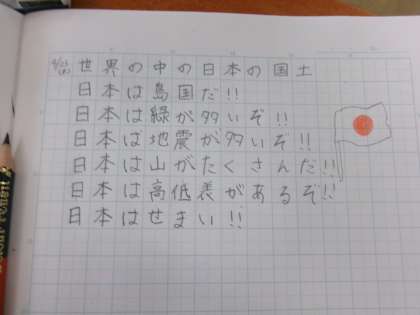 世界の中の日本の国土
日本は島国だ!!
日本は緑が多いぞ!!
日本は地震が多いぞ!!
日本は山がたくさんだ!!
日本は高低差があるぞ!!
日本はせまい!!